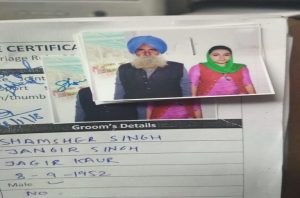 E CERTIFICA
riage R
/thumb
Groom's Details
SHAMSHER SINGH
JANGIR SINGH
JAGIR KAUR
8-9-1952
Male ✓
NO